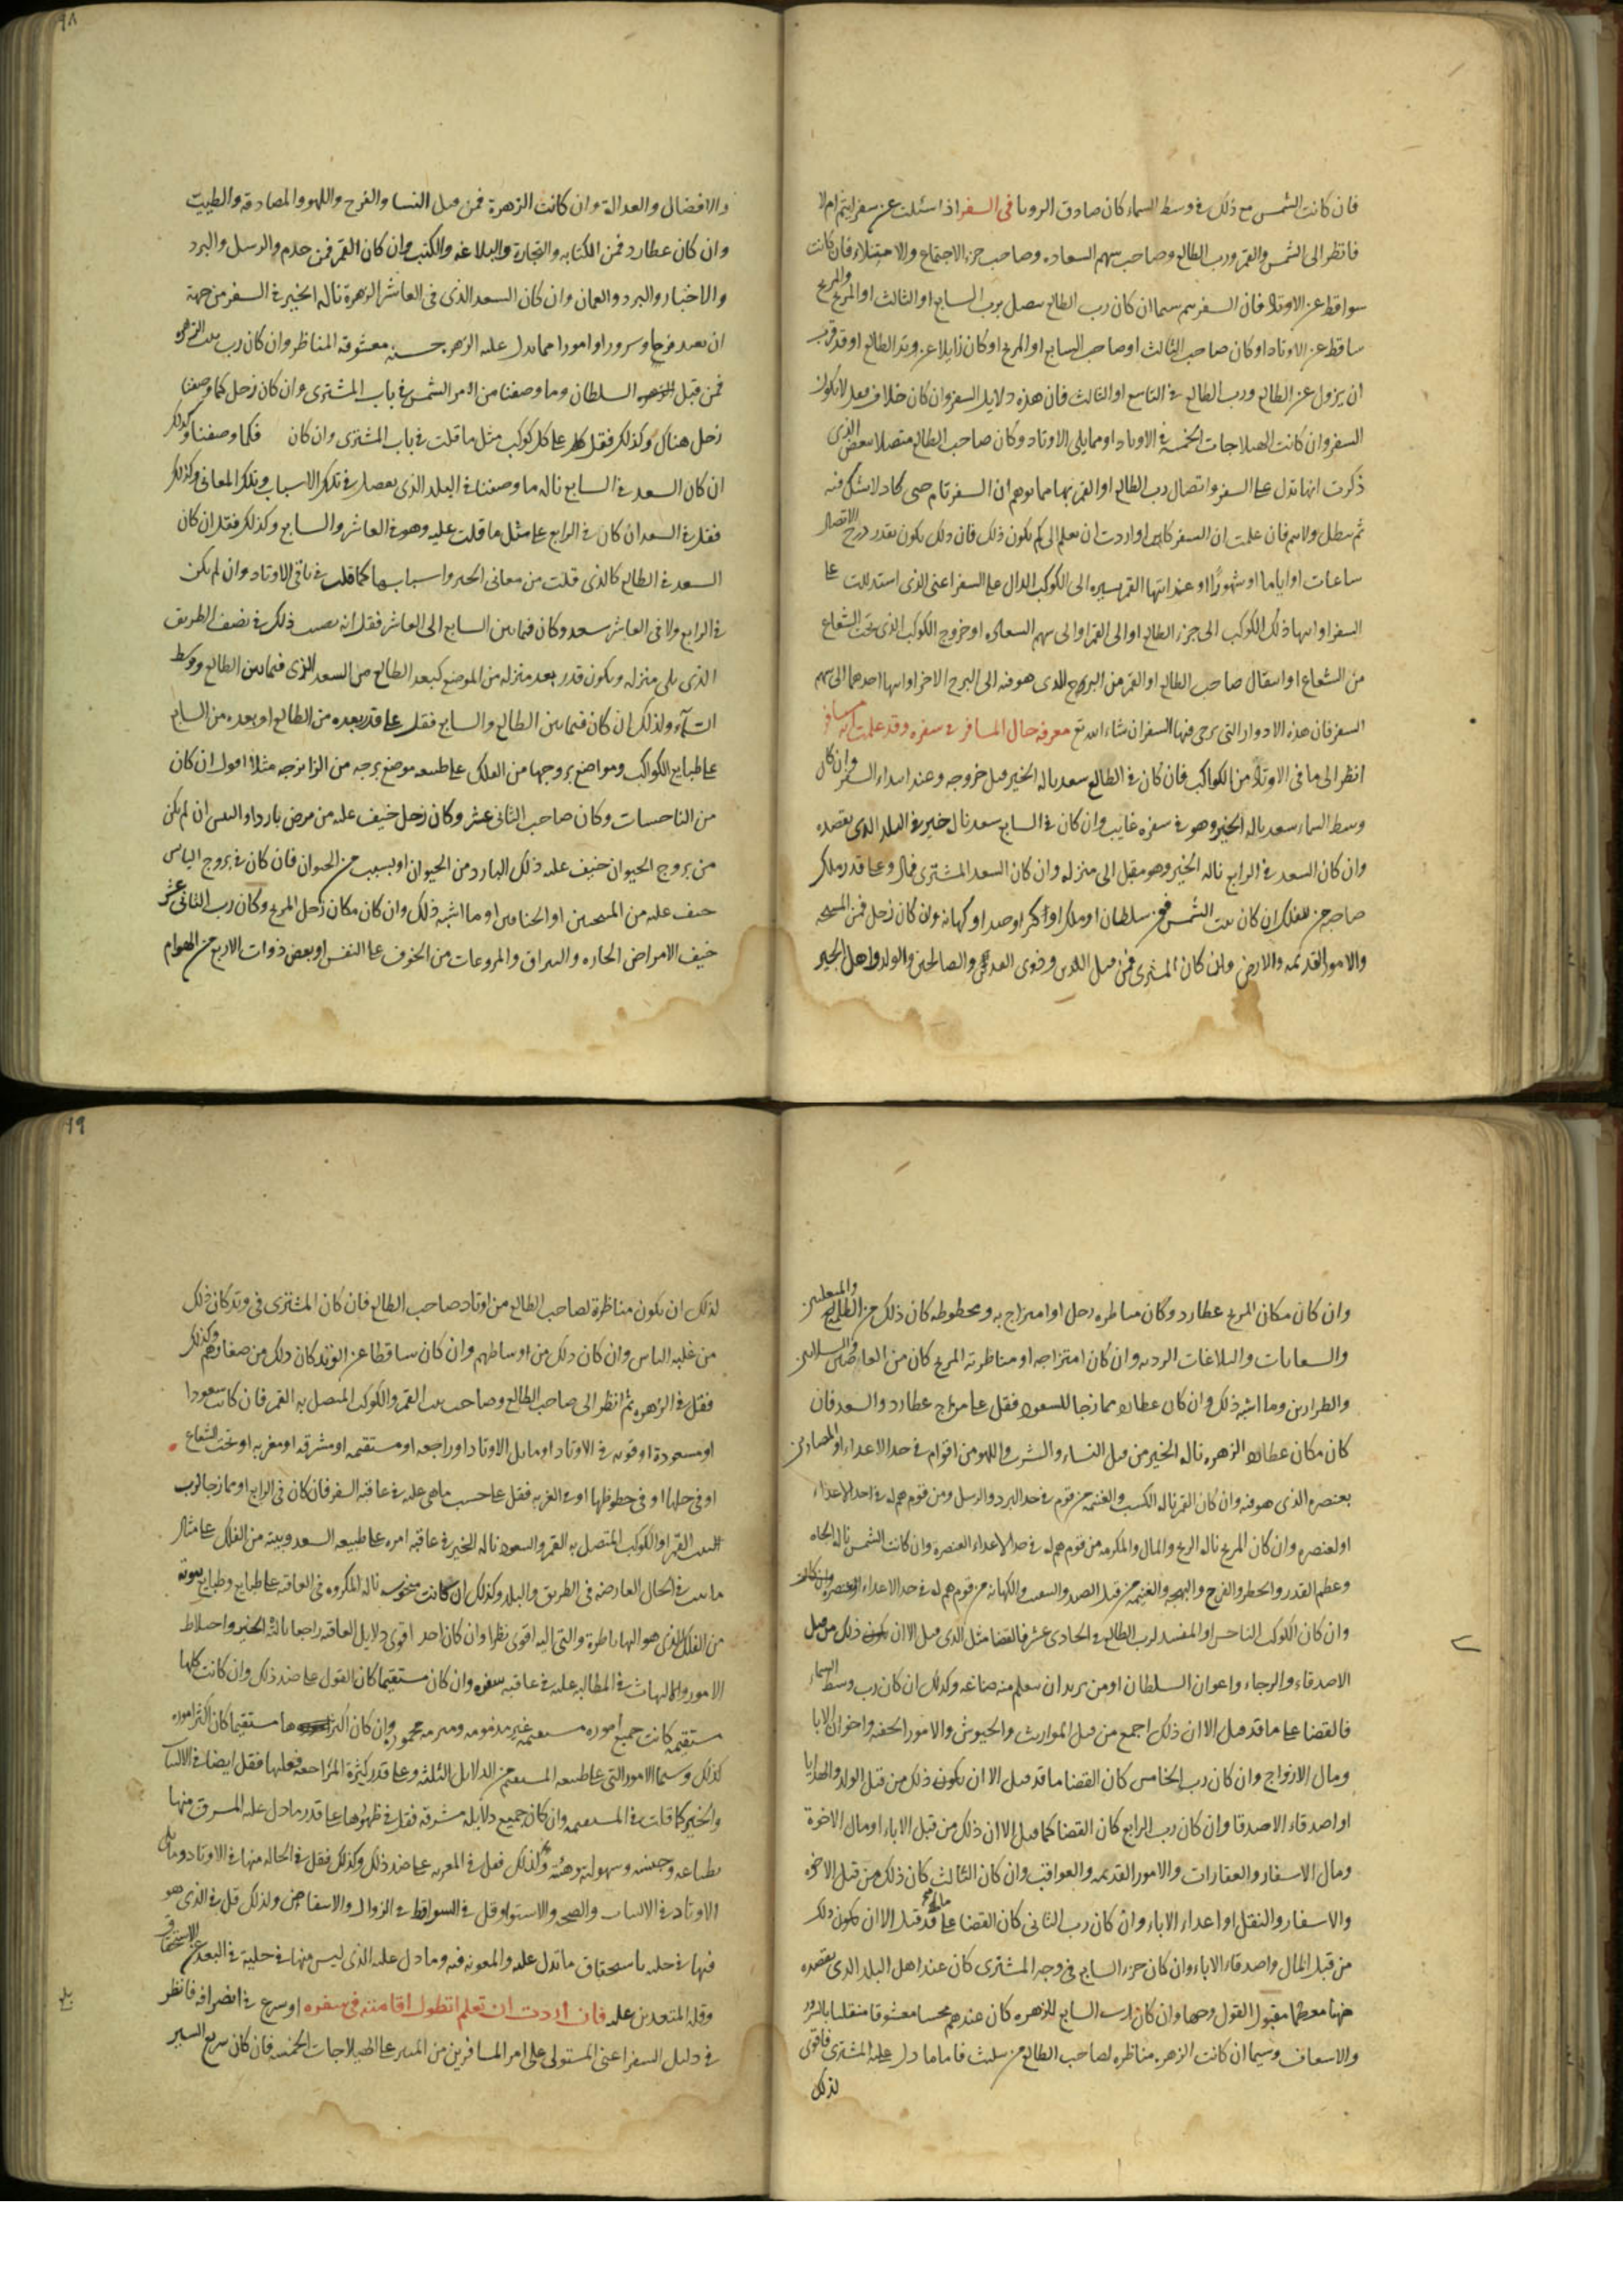 فان كانت الشمس مع ذلك في وسط السماء كان صادق الرويا في السفر اذا سئلت عن سفر ايتم ام لا
فانظر الى الشمس والقمر ورب الطالع وصاحب سهم السعاده وصاحب جزء الاجتماع والامتلاء فان كانت
سواقط عن الاوتاد فان السفر يتم سيما ان كان رب الطالع متصل برب السابع او الثالث او المريخ والمريخ
ساقط عن الاوتاد او كان صاحب الثالث او صاحب السابع او المريخ او كان زايلا عن وتد الطالع او قد قرب
ان يزول عن الطالع ورب الطالع في التاسع او الثالث فان هذه دلايل السفر وان كان خلاف فقل لا يكون
السفر وان كانت الهيلاجات الخمسة في الاوتاد او مما يلي الاوتاد وكان صاحب الطالع متصلا ببعض الذي
ذكرت انها تدل على السفر واتصال رب الطالع او القمر بها مما يوهم ان السفر تام حتى كاد لا يشك فيه
ثم يبطل ولا يتم فان علمت ان السفر كاين اواردت ان تعلم الى كم يكون ذلك فان ذلك يكون بقدر درج الاتصال
ساعات او اياما او شهورا او عند انتها القمر بسيره الى الكوكب الدال على السفر اعنى الذى استدللت على
السفر او انتها ذلك الكوكب الى جزء الطالع او الى القمر او الى سهم السعاده او خروج الكوكب الذى تحت الشعاع
من الشعاع او انتقال صاحب الطالع او القمر من البرج الذى هو فيه الى البرج الاخر او انتها احدهما الى سهم
السفر فان هذه الادوار التى يرجى فيها السفر ان شاء الله تع معرفة حال المسافر في سفره وقد علمت انه مسافر
انظر الى ما فى الاوتاد من الكواكب فان كان في الطالع سعد ناله الخير قبل خروجه وعند ابتداء السفر وان كان
وسط السماء سعد ناله الخير وهو في سفره غايب وان كان في السابع سعد نال خير في البلد الذى يقصده
وان كان السعد في الرابع ناله الخير وهو مقبل الى منزله وان كان السعد المشترى فمال وعلى قدر ملك
صاحبه من الفلك ان كان بيت الشمس فمن سلطان او ملك او وان كان زحل فمن
والامور القديمه والارض وان كان المشترى فمن قبل الدين وذوى العدل والصالحين والولد واهل الخير
والافضال والعدالة وان كانت الزهرة فمن قبل النسا والفرح واللهو والمصادقه والطيبت
وان كان عطارد فمن الكتابه والتجارة والبلاغه والكتب وان كان القمر فمن خدم والرسل والبرد
والاخبار والبرد والعمان وان كان السعد الذى فى العاشر الزهرة ناله الخير في السفر من جهة
ان يفيد فرحا وسرورا وامورا مما تدل عليه الزهره حسنه معشوقه المناظر وان كان رب بيت الزهره
فمن قبل السلطان وما وصفنا من امر الشمس في باب المشترى وان كان زحل كما وصفنا
زحل هناك وكذلك فقل على كل كوكب مثل ما قلت في باب المشترى وان كان فكما وصفنا وكذلك
ان كان السعد في السابع ناله ما وصفنا في البلد الذى يقصد في تلك الاسباب وتلك المعانى وكذلك
فقل في السعد ان كان في الرابع على مثل ما قلت عليه وهو في العاشر والسابع وكذلك فقل ان كان
السعد في الطالع كالذى قلت من معانى الخير واسبابها كما قلت في باقى الاوتاد وان لم يكن
في الرابع ولا فى العاشر سعد وكان فيما بين السابع الى العاشر فقل انه يصيب ذلك في نصف الطريق
الذى يلى منزله ويكون قدر بعد منزله من الموضع كبعد الطالع من السعد الذى فيما بين الطالع ووسط
السماء ولذلك ان كان فيما بين الطالع والسابع فقل على قدر بعده من الطالع او بعده من السابع
على طبايع الكواكب ومواضع بروجها من الفلك على طبيعه موضع برجه من الزايرجه مثلا اقول ان كان
من الناحسات وكان صاحب الثانى عشر وكان زحل خيف عليه من مرض بارد او ان لم يكن
من بروج الحيوان خيف عليه ذلك البارد من الحيوان او بسبب من الحيوان فان كان في بروج الناس
خيف عليه من او ما اشبه ذلك وان كان مكان زحل المريخ وكان رب الثانى عشر
خيف الامراض الحاره والمروعات من الخوف على النفس او بعض ذوات الاربع من الهوام
وان كان مكان المريخ عطارد وكان مناظره زحل او امتزاج به ومحظوظه كان ذلك من
والسعايات والبلاغات الرديه وان كان امتزاجه او مناظرته المريخ كان من
والطرارين وما اشبه ذلك وان كان عطارد ممازجا للسعود فقل على مزاج عطارد والسعد فان
كان مكان عطارد الزهره ناله الخير من قبل النساء والشرب واللهو من اقوام في حد الاعداء
بعنصره الذى هو فيه وان كان القمر ناله الكسب والغنيمه من قوم في حد البرد والرسل ومن قوم هم له في حد الاعداء
او لعنصره وان كان المريخ ناله الربح والمال والمكرمه من قوم هم له في حد الاعداء لعنصره وان كانت الشمس ناله الجاه
وعظم القدر والخطر والفرح والبهجه والغنيمه من قبل الصيد والكهانه من قوم هم له في حد الاعداء
وان كان الكوكب الناحس او المفسد لرب الطالع في الحادى عشر فالقضا مثل الذى قبل الا ان ذلك من قبل
الاصدقاء والرجاء واعوان السلطان او من يريد ان يتعلم منه صناعه وكذلك ان كان رب وسط السماء
فالقضا على ما قد قبل الا ان ذلك اجمع من قبل المواريث والجيوش والامور الخفيه واخوان الابا
ومال الازواج وان كان رب الخامس كان القضا ما قد قبل الا ان يكون ذلك من قبل الولد والهدايا
او اصدقاء الاصدقا وان كان رب الرابع كان القضا كما قبل الا ان ذلك من قبل الاباء او مال الاخوة
ومال الاسفار والعقارات والامور القديمه والعواقب وان كان الثالث كان ذلك من قبل الاخوه
والاسفار والنقل او اعداء الاباء وان كان رب الثانى كان القضا على ما قد قبل الا ان يكون ذلك
من قبل المال واصدقاء الاباء وان كان جزء السابع في وجه المشترى كان عند اهل البلد الذى يقصده
معظما مقبول القول وجيها وان كان رب السابع للزهره كان عندهم محببا معشوقا متقلبا بالسرور
والاسعاف وسيما ان كانت الزهره مناظره لصاحب الطالع من تثليث فاما ما دل عليه المشترى فاقوى
لذلك
لذلك ان يكون مناظرة لصاحب الطالع من اوتاد صاحب الطالع فان كان المشترى فى وتد كان ذلك
من علية الناس وان كان ذلك من اوساطهم وان كان ساقطا عن الوتد كان ذلك من صغارهم وكذلك
فقل في الزهره ثم انظر الى صاحب الطالع وصاحب بيت القمر والكوكب المتصل به القمر فان كانت سعودا
او مسعودة او قويه في الاوتاد او مايل الاوتاد او راجعه او مستقيمه او مشرقه او مغربه او تحت الشعاع
او فى حلها او فى حظوظها او في الغربه فقل على حسب ما هى عليه في عاقبة السفر فان كان فى الرابع او ممازجا لرب
البيت القمر او الكوكب المتصل به القمر والسعود ناله الخير في عاقبة امره على طبيعه السعد وبيته من الفلك على مثال
ما بينت في الحال العارضه فى الطريق والبلد وكذلك ان كانت منحوسه ناله المكروه فى العاقبه على طبايع وطبايع بيوته
من الفلك الذى هو اليها ناظرة والتى اليه اقوى نظرا وان كان احد اقوى دلايل العاقبه راجعا ناله الخير واختلاط
الامور والالتياث في المطالبه عليه في عاقبة سفره وان كان مستقيما كان القول على ضد ذلك وان كانت كلها
مستقيمه كانت جميع اموره مستقيمه غير مذمومه محموده وان كان اكثرها مستقيما كان اكثر اموره
كذلك وسيما الامور التى على طبيعه المستقيم من الدلايل الثلثة وعلى قدر كثرة المراجعه فعليها فقل ايضا في الالتياث
والخير كما قلت في المستقيمه وان كان جميع دلايله مشرقه فقل في ظهورها على قدر ما دل عليه المشرق منها
بطباعه وجنسه وسهولته وهيئته وكذلك فقل في المغربه على ضد ذلك وكذلك فقل في الحاله منها في الاوتاد وما يلى
الاوتاد في الثبات والصحه والاستواء وقل في السواقط في الزوال والانتقاض ولذلك قل في الذى هو
فيها في حليه باستحقاق ما تدل عليه والمعونه فيه وما دل عليه الذى ليس منها في حلية في البعد عن الاستحقاق
وقلة المتعدين عليه فان اردت ان تعلم اتطول اقامته فى سفره او يسرع في انصرافه فانظر
في دليل السفر اعنى المستولى على امر المسافرين من المبتز على الهيلاجات الخمسه فان كان سريع السير